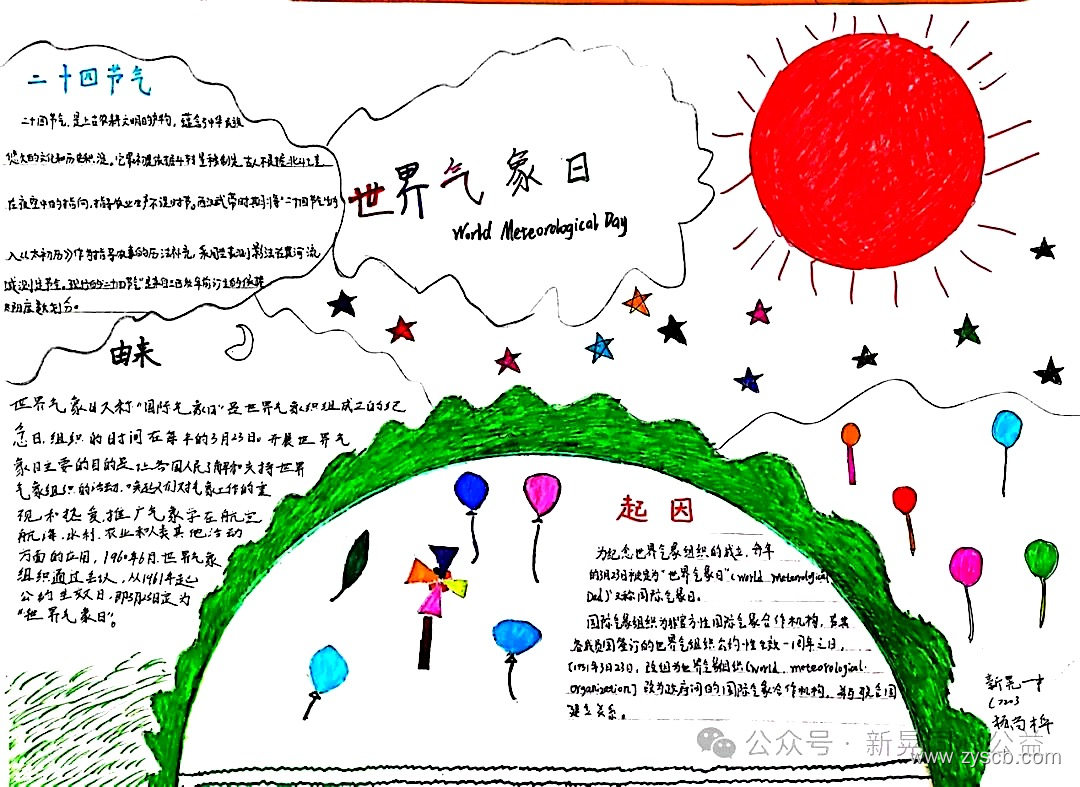 二十四节气
二十四节气，是上古农耕文明的产物，蕴含了中华民族
悠久的文化和历史积淀。
在夜空中的指向，指导农业生产不误时节。西汉武帝时期"二十四节气"
入《太初历》作为指导农事的历法补充，采用圭表测影法在黄河流
域测定
太阳度数划分。
世界气象日
World Meteorological Day
由来
世界气象日又称"国际气象日"是世界气象组织组成立的纪
念日，组织的时间在每年的3月23日。开展世界气
象日主要的目的是让各国人民了解和支持世界
气象组织的活动，人们对气象工作的重
视和热爱推广气象学在航空
航海、水利、农业和人类其他活动
方面的应用，1960年6月世界气象
组织通过，从1961年起
公约生效日，即3月23日定为
"世界气象日"。
起因
为纪念世界气象组织的成立，每年
的3月23日被定为"世界气象日"(World Meteorological
Day)"又称国际气象日。
国际气象组织为非官方性国际气象合作机构，
各成员国签订的世界气组织公约性生效一周年之日，
(1951年3月23日，改组为世界气象组织(World meteorological
organization] 改为政府间的国际气象合作机构，并与联合国
建立关系。
新晃一中
C2203
公众号·新晃 公益
www.zyscb.com